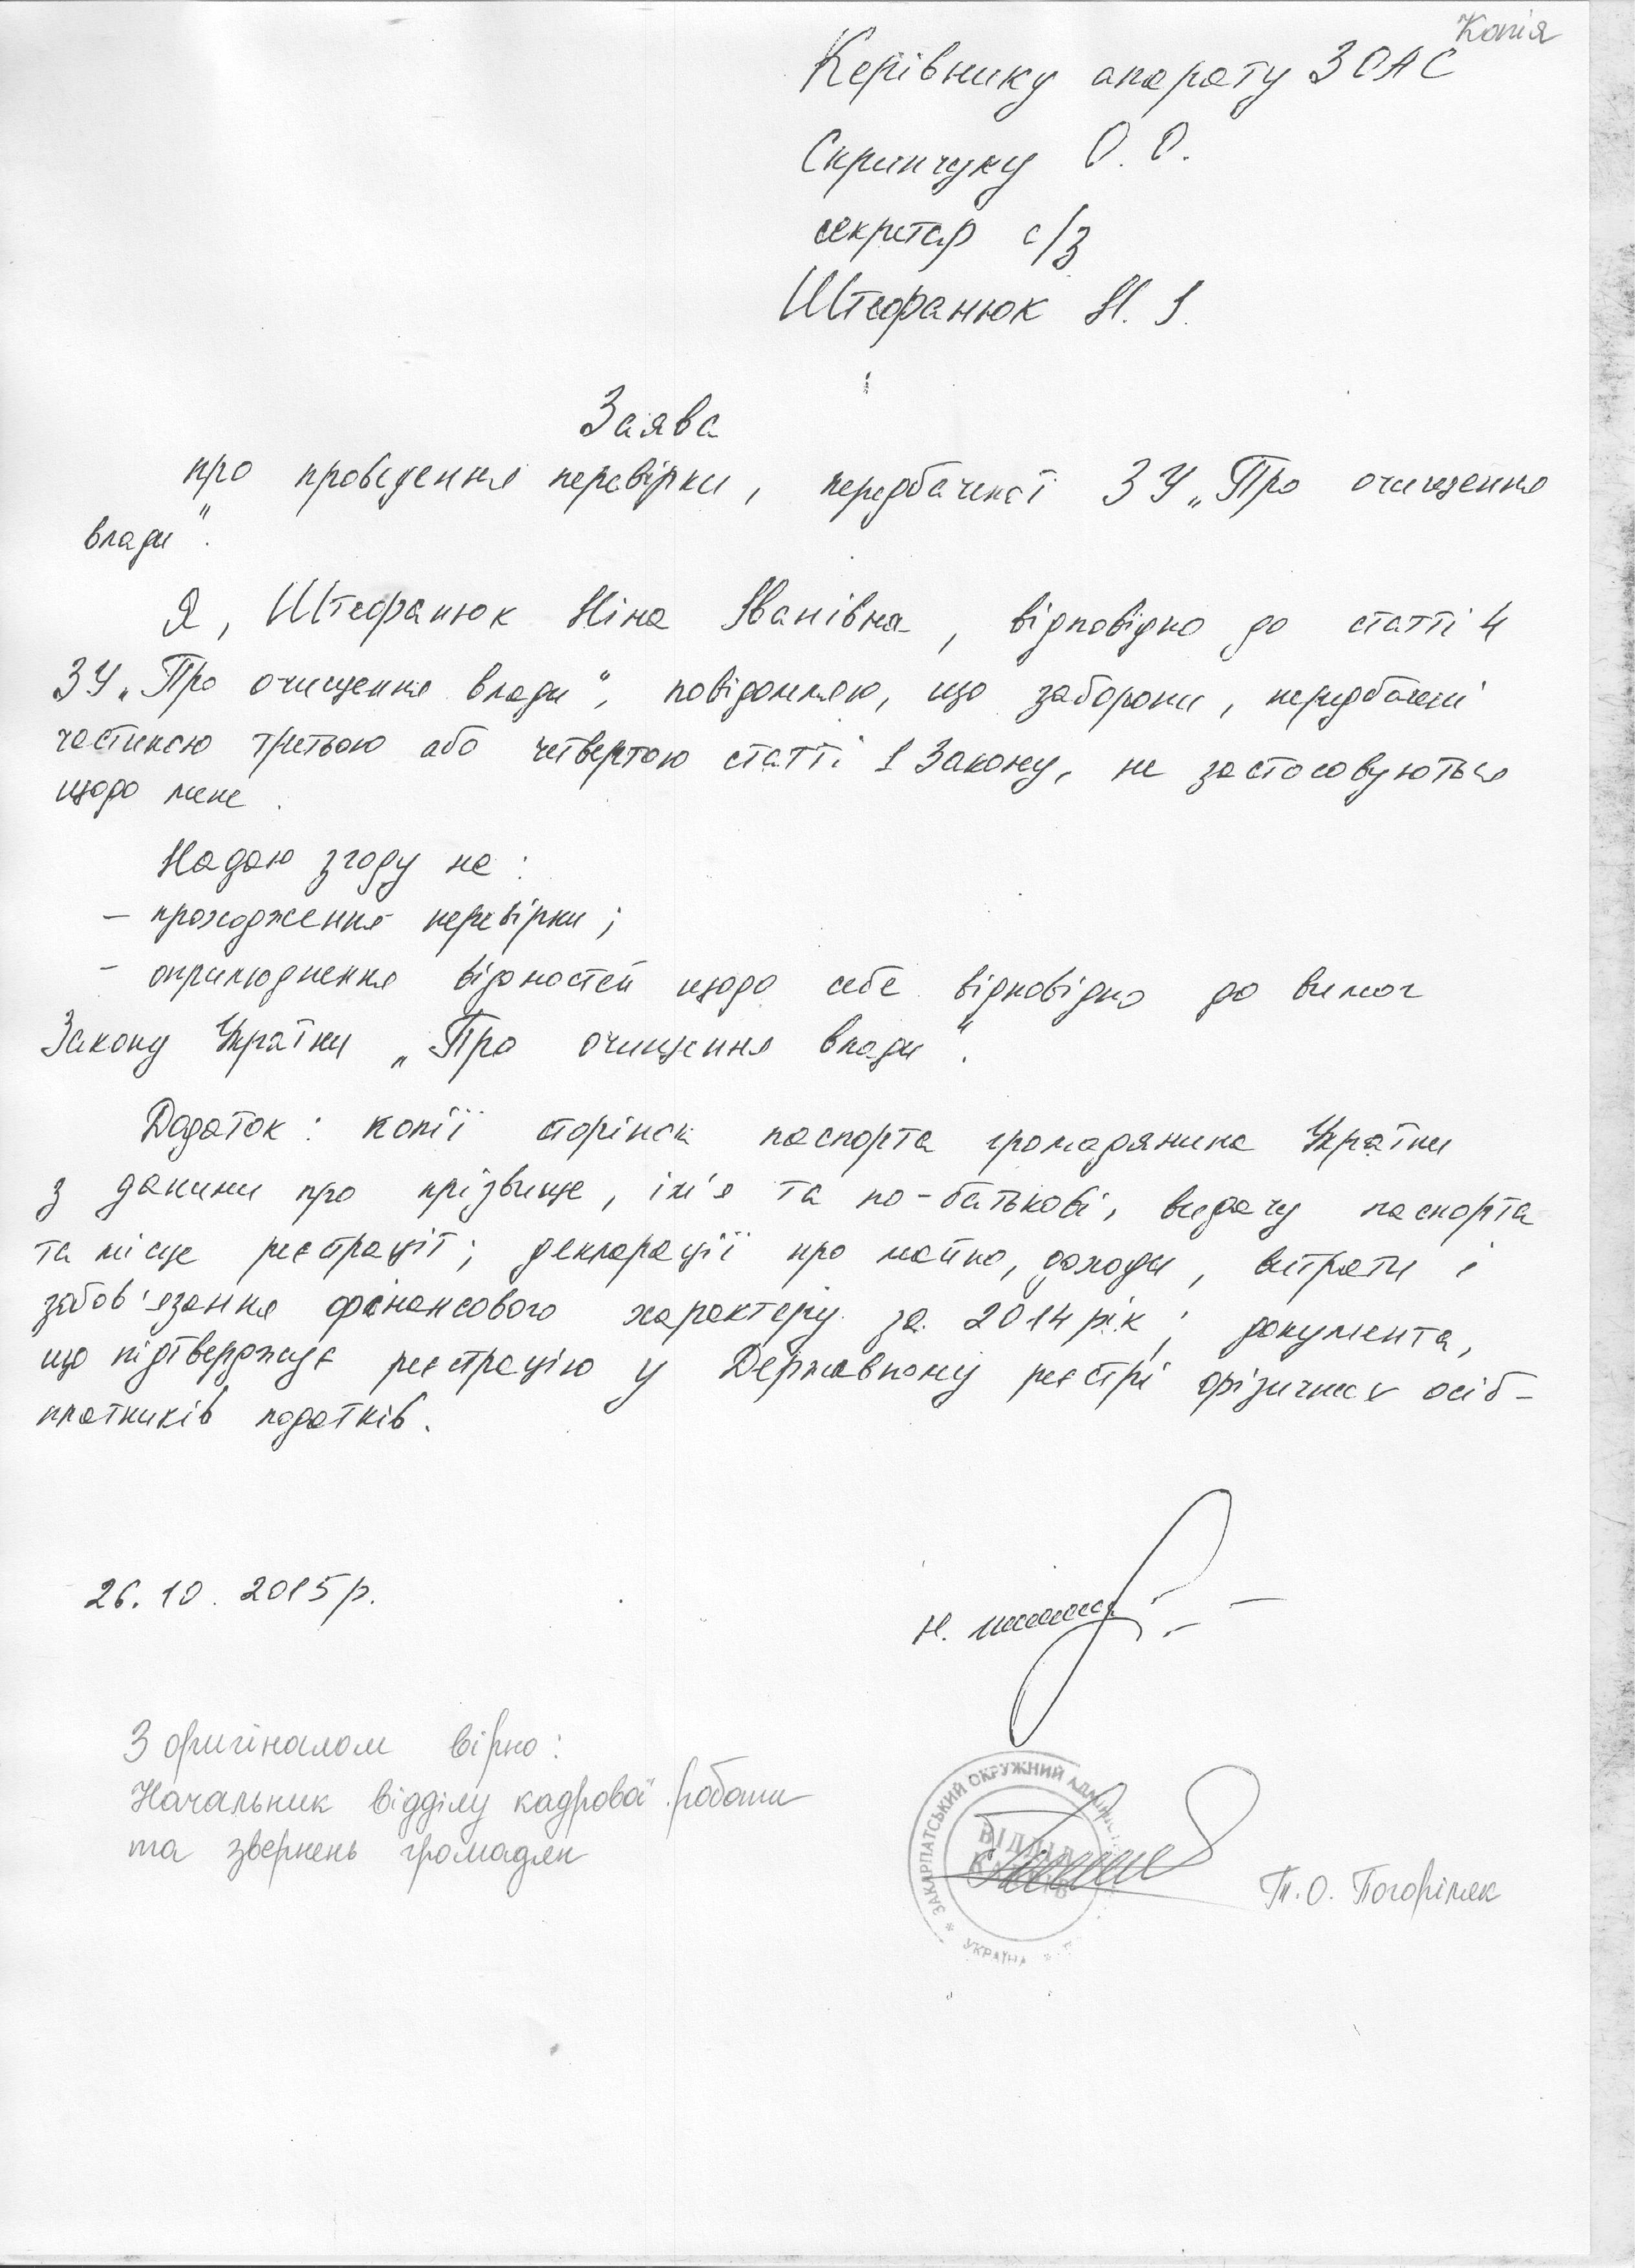 Копія
Керівнику апарату ЗОАС
Скрипчуку О. О.
секретар с/з
Штефанюк Н. І.
Заява
про проведення перевірки, передбаченої ЗУ „Про очищення
влади".
Я, Штефанюк Ніна Іванівна, відповідно до статті 4
ЗУ „Про очищення влади", повідомляю, що заборони, передбачені
частиною третьою або четвертою статті 1 Закону, не застосовуються
щодо мене.
Надаю згоду на:
– проходження перевірки;
– оприлюднення відомостей щодо себе відповідно до вимог
Закону України „Про очищення влади".
Додаток: копії сторінок паспорта громадянина України
з даними про прізвище, ім'я та по-батькові, видачу паспорта
та місце реєстрації; декларації про майно, доходи, витрати і
зобов'язання фінансового характеру за 2014 рік; документа,
що підтверджує реєстрацію у Державному реєстрі фізичних осіб-
платників податків.
26.10.2015р.
Н.
З оригіналом вірно:
Начальник відділу кадрової роботи
та звернень громадян
ЗАКАРПАТСЬКИЙ ОКРУЖНИЙ
ВІДДІЛ
КАДРІВ
УКРАЇНА
Т.О. Погоріляк